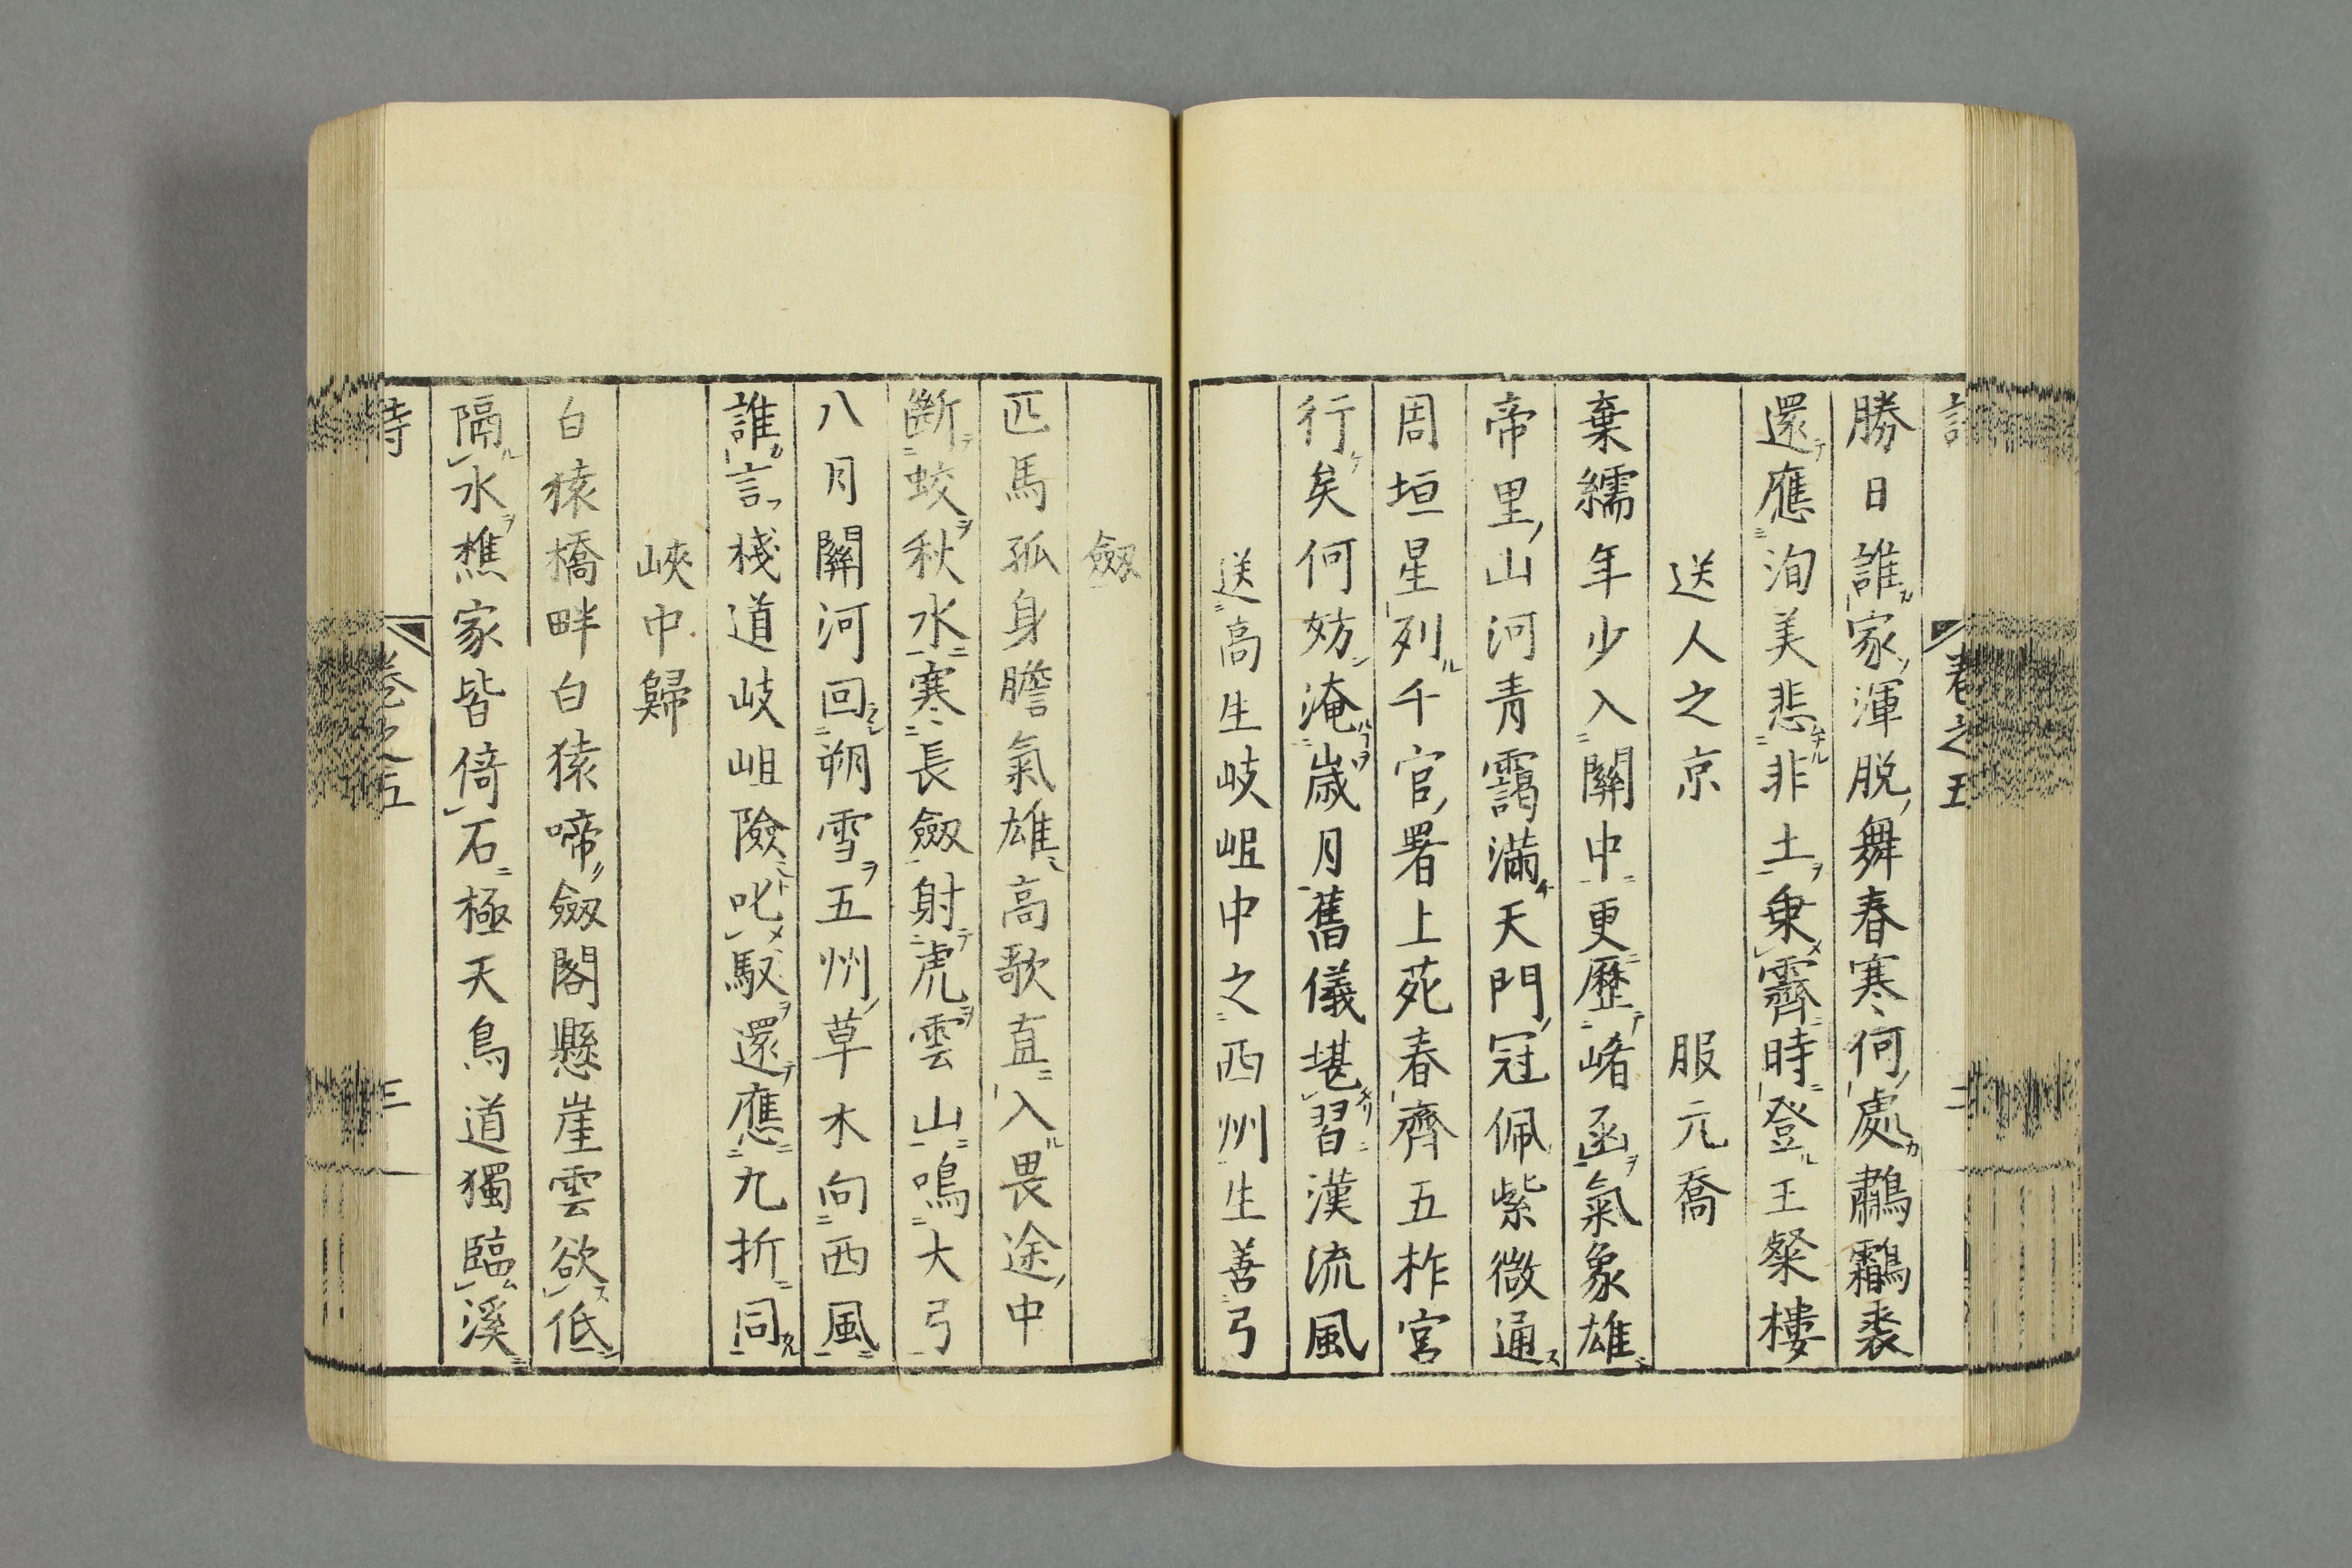 卷之五
勝日誰家渾脱舞春寒何處鷫鸘裘
還應洵美悲非土乗霽時登王粲樓
送人之京　服元喬
棄繻年少入關中更歷崤函氣象雄
帝里山河青靄滿天門冠佩紫微通
周垣星列千官署上苑春齊五柞宮
行矣何妨淹歲月舊儀堪習漢流風
送高生岐岨中之西州生善弓
劔
匹馬孤身膽氣雄高歌直入畏途中
斷蛟秋水寒長劔射虎雲山鳴大弓
八月關河回朔雪五州草木向西風
誰言棧道岐岨險叱馭還應九折同
峽中歸
白猿橋畔白猿啼劔閣懸崖雲欲低
隔水樵家皆倚石極天鳥道獨臨溪
卷之五
三